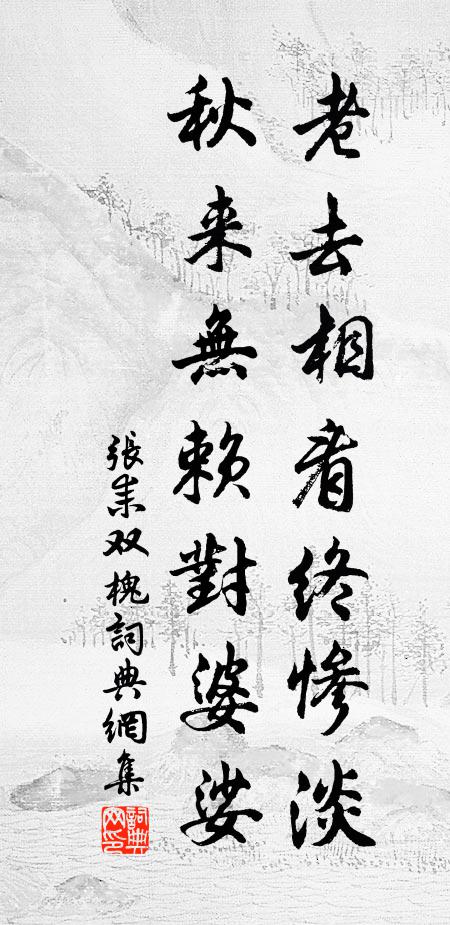 老去相看终惨淡
秋来無赖對婆娑
張耒双槐詞典網集
詞典網印